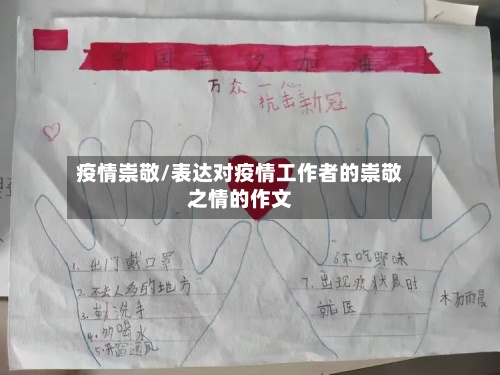 中国武汉加油
万众一心
抗击新冠
疫情崇敬/表达对疫情工作者的崇敬
之情的作文
1.出门戴口罩
2.不去人多的地方
3.勤洗手
4.多喝水
5.开窗通风
6不吃野味
7.出现症状及时
就医